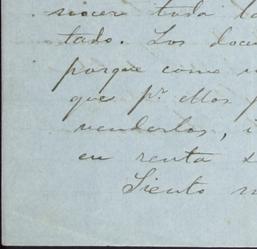 toda
tado. Los
porque como
que pr. ellos
venderlos,
en renta
Siento